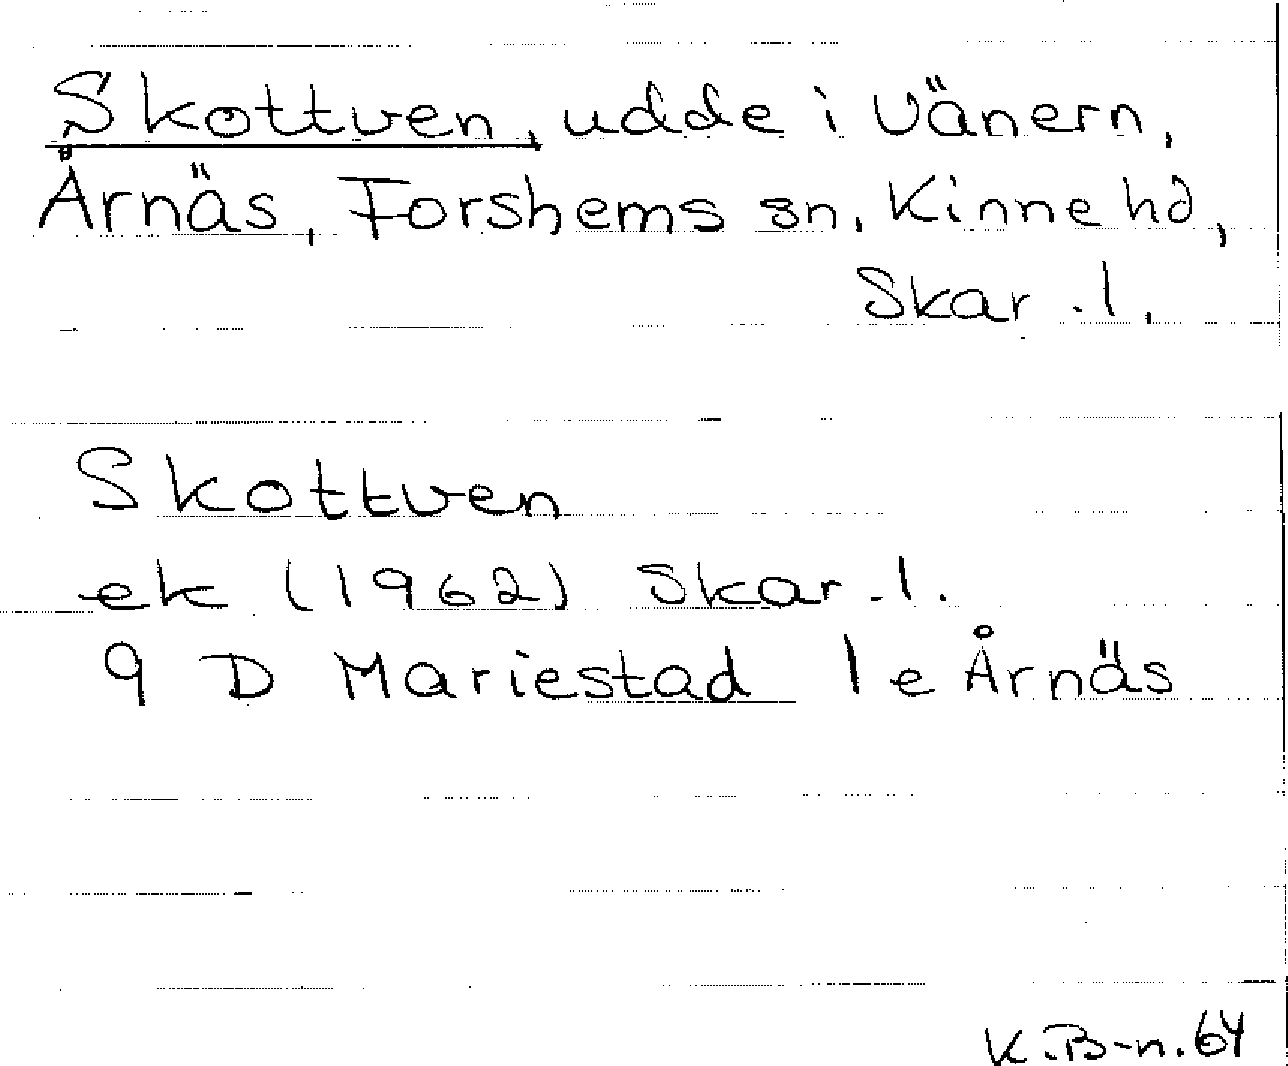 Skottven, udde i Vänern,
Årnäs, Forshems sn, Kinne hd,
Skar. l.
Skottven
ek (1962) Skar. l.
9 D Mariestad 1 e Årnäs
K.B-n. 64